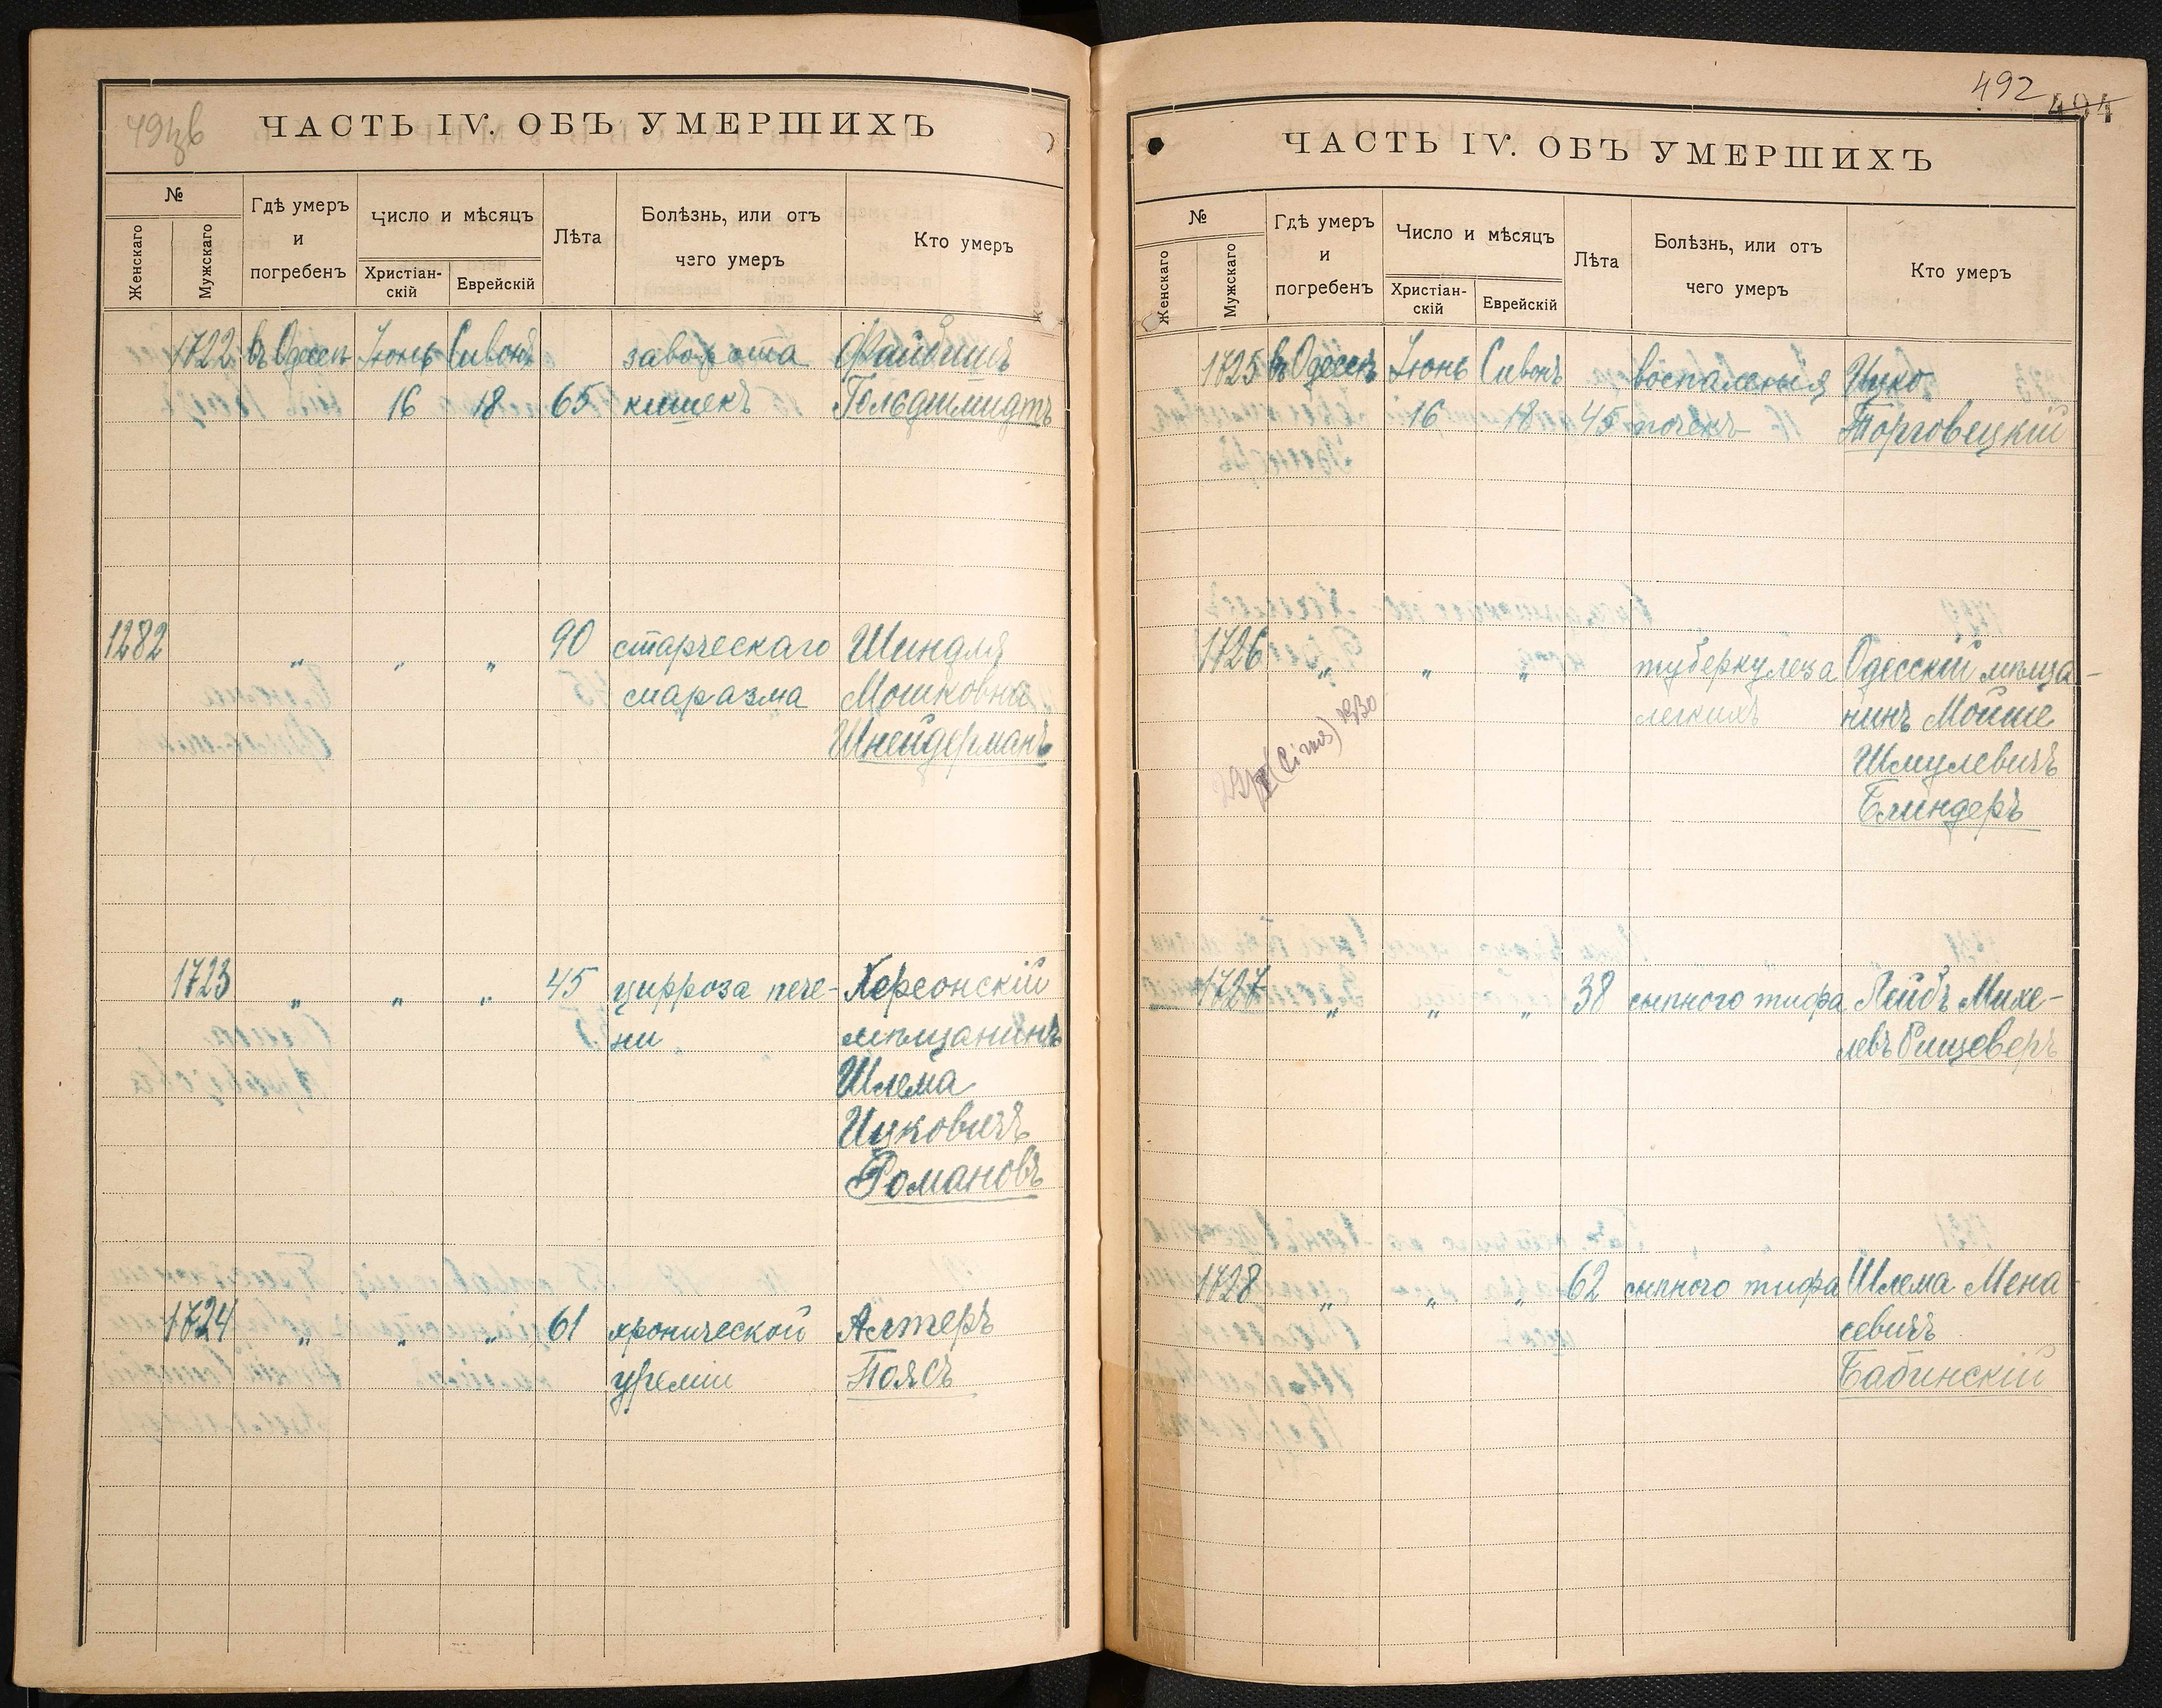 ЧАСТЬ IV. ОБЪ УМЕРШИХЪ
№
Женскаго
Мужскаго
Гдѣ умеръ
и
погребенъ
Число и мѣсяцъ
Христіан-
скій
Еврейскій
Лѣта
Болѣзнь, или отъ
чего умеръ
Кто умеръ
1722 въ Одессѣ Іюнь Сивонъ заворота Файбишъ
16 18 65 кишекъ Гольдшмидтъ
1282 „ „ „ 90 старческаго Шиндля
маразма Мошковна
Шнейдерманъ
1723 „ „ „ 45 цирроза пече- Херсонскій
ни мѣщанинъ
Шлема
Ицковичъ
Романовъ
1724 „ „ „ 61 хронической Алтеръ
уреміи Поясъ
492
494
ЧАСТЬ IV. ОБЪ УМЕРШИХЪ
№
Женскаго
Мужскаго
Гдѣ умеръ
и
погребенъ
Число и мѣсяцъ
Христіан-
скій
Еврейскій
Лѣта
Болѣзнь, или отъ
чего умеръ
Кто умеръ
1725 въ Одессѣ Іюнь Сивонъ воспаленія Ицко
16 18 45 почекъ Торговецкій
1726 „ „ „ туберкулеза Одесскій мѣща-
легкихъ нинъ Мойше
Шмулевичъ
Блиндеръ
1727 „ „ „ 38 сыпного тифа Лейбъ Михе-
левъ
1728 „ „ „ 62 сыпного тифа Шлема Мена
севичъ
Бабинскій